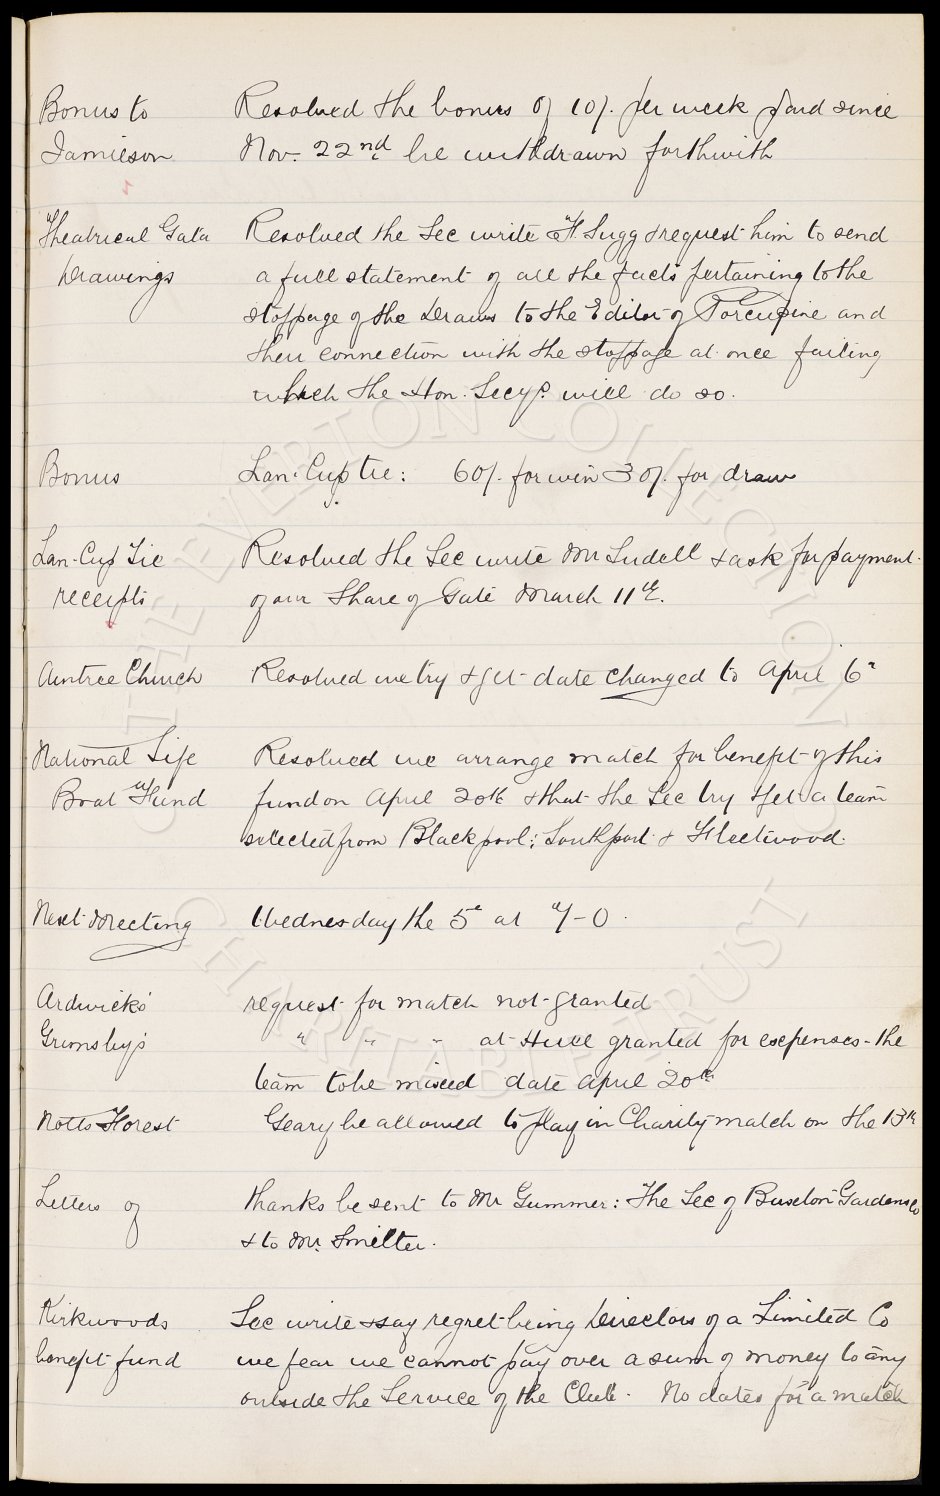 Bonus to Resolved the bonus of 10/. per week paid since
Jamieson Nov. 22nd be withdrawn forthwith
Theatrical Gala Resolved the Sec write F. Sugg & request him to send
Drawings a full statement of all the facts pertaining to the
stoppage of the Draws to the Editor of Porcupine and
their connection with the stoppage at once failing
which the Hon. Secy. will do so.
Bonus Lan. Cup tie: 60/. for win 30/. for draw
Lan. Cup Tie Resolved the Sec write Mr Sudell & ask for payment.
receipts of our Share of Gate March 11th.
Aintree Church Resolved we try & get date changed to April 6th
National Life Resolved we arrange match for benefit of this
Boat Fund fund on April 20th & that the Sec try & get a team
selected from Blackpool: Southport & Fleetwood.
Next Meeting Wednesday the 5th at 7-0.
Ardwick's request for match not granted
Grimsby's " " " at Hull granted for expenses - the
team to be mixed date April 20th
Notts Forest Geary be allowed to play in Charity match on the 13th
Letters of thanks be sent to Mr Gummer: The Sec of Gardens Co
& to Mr. Smelter.
Kirkwoods Sec write & say regret being Directors of a Limited Co
benefit fund we fear we cannot pay over a sum of money to any
outside the Service of the Club. No dates for a match
THE EVERTON COLLECTION
CHARITABLE TRUST